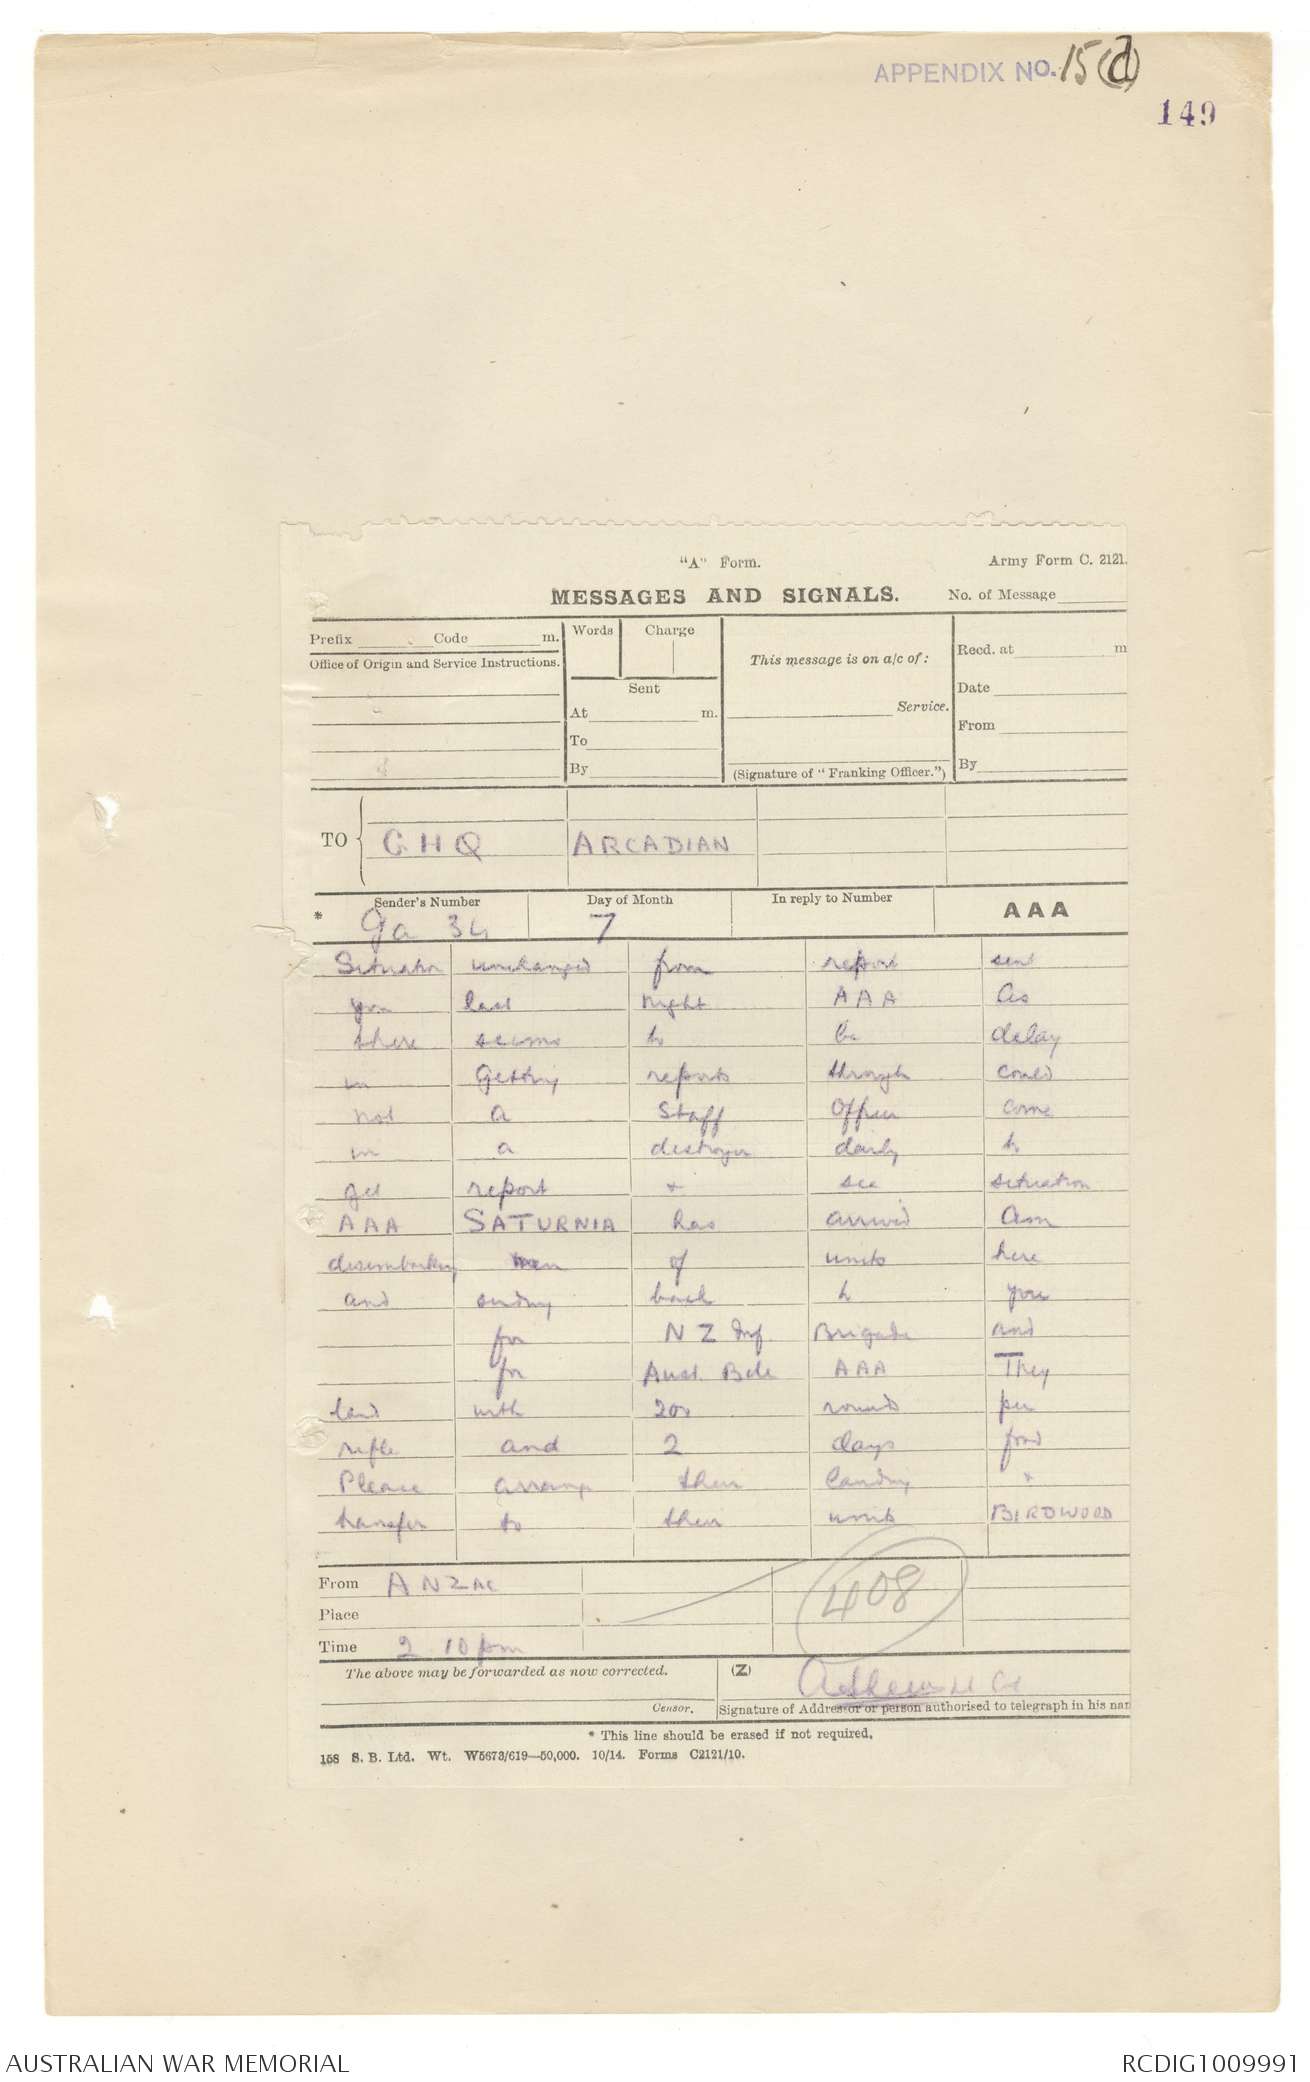 APPENDIX NO. 15(d)
149
"A" Form. Army Form C. 2121.
MESSAGES AND SIGNALS. No. of Message
Prefix Code m. Words Charge
Office of Origin and Service Instructions.
This message is on a/c of:
Recd. at m
Sent
Date
At m.
Service.
From
To
By
(Signature of "Franking Officer.")
By
TO GHQ ARCADIAN
Sender's Number Day of Month In reply to Number AAA
* Ga 34 7
Situation unchanged from report sent
you last night AAA As
there seems to be delay
in getting reports through could
not a Staff Officer come
in a destroyer daily to
get report + see situation
AAA SATURNIA has arrived am
disembarking men of units here
and sending back to you
for NZ Inf. Brigade and
for Aust. Bde AAA They
land with 200 rounds per
rifle and 2 days food
Please arrange their landing +
transfer to their units BIRDWOOD
From ANZAC
408
Place
Time 2.10 pm
The above may be forwarded as now corrected. (Z)
Censor. Signature of Addressor or person authorised to telegraph in his nam
* This line should be erased if not required.
158 S. B. Ltd. Wt. W5673/619—50,000. 10/14. Forms C2121/10.
AUSTRALIAN WAR MEMORIAL RCDIG1009991